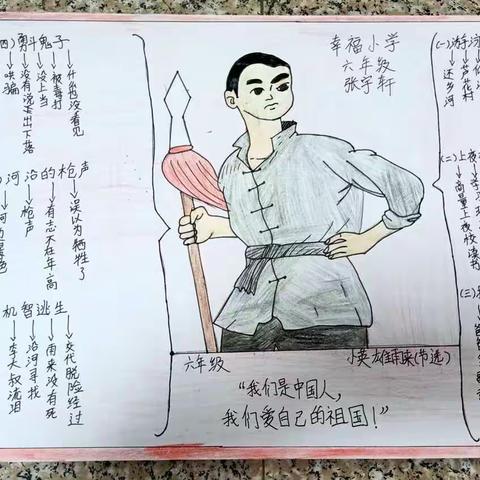 幸福小学
六年级
张宇轩
四)勇斗鬼子
哄骗
没有说出下落
没上当
被毒打
什么也没看见
河沿的枪声
枪声
有志不在年高
误以为牺牲了
机智逃生
李大叔流泪
沿河寻找
雨来没有死
交代脱险经过
(一)游
还乡河
芦花村
(二)上夜
商量上夜校读书
(三)
六年级
小英雄雨来(节选)
“我们是中国人,
我们爱自己的祖国!”